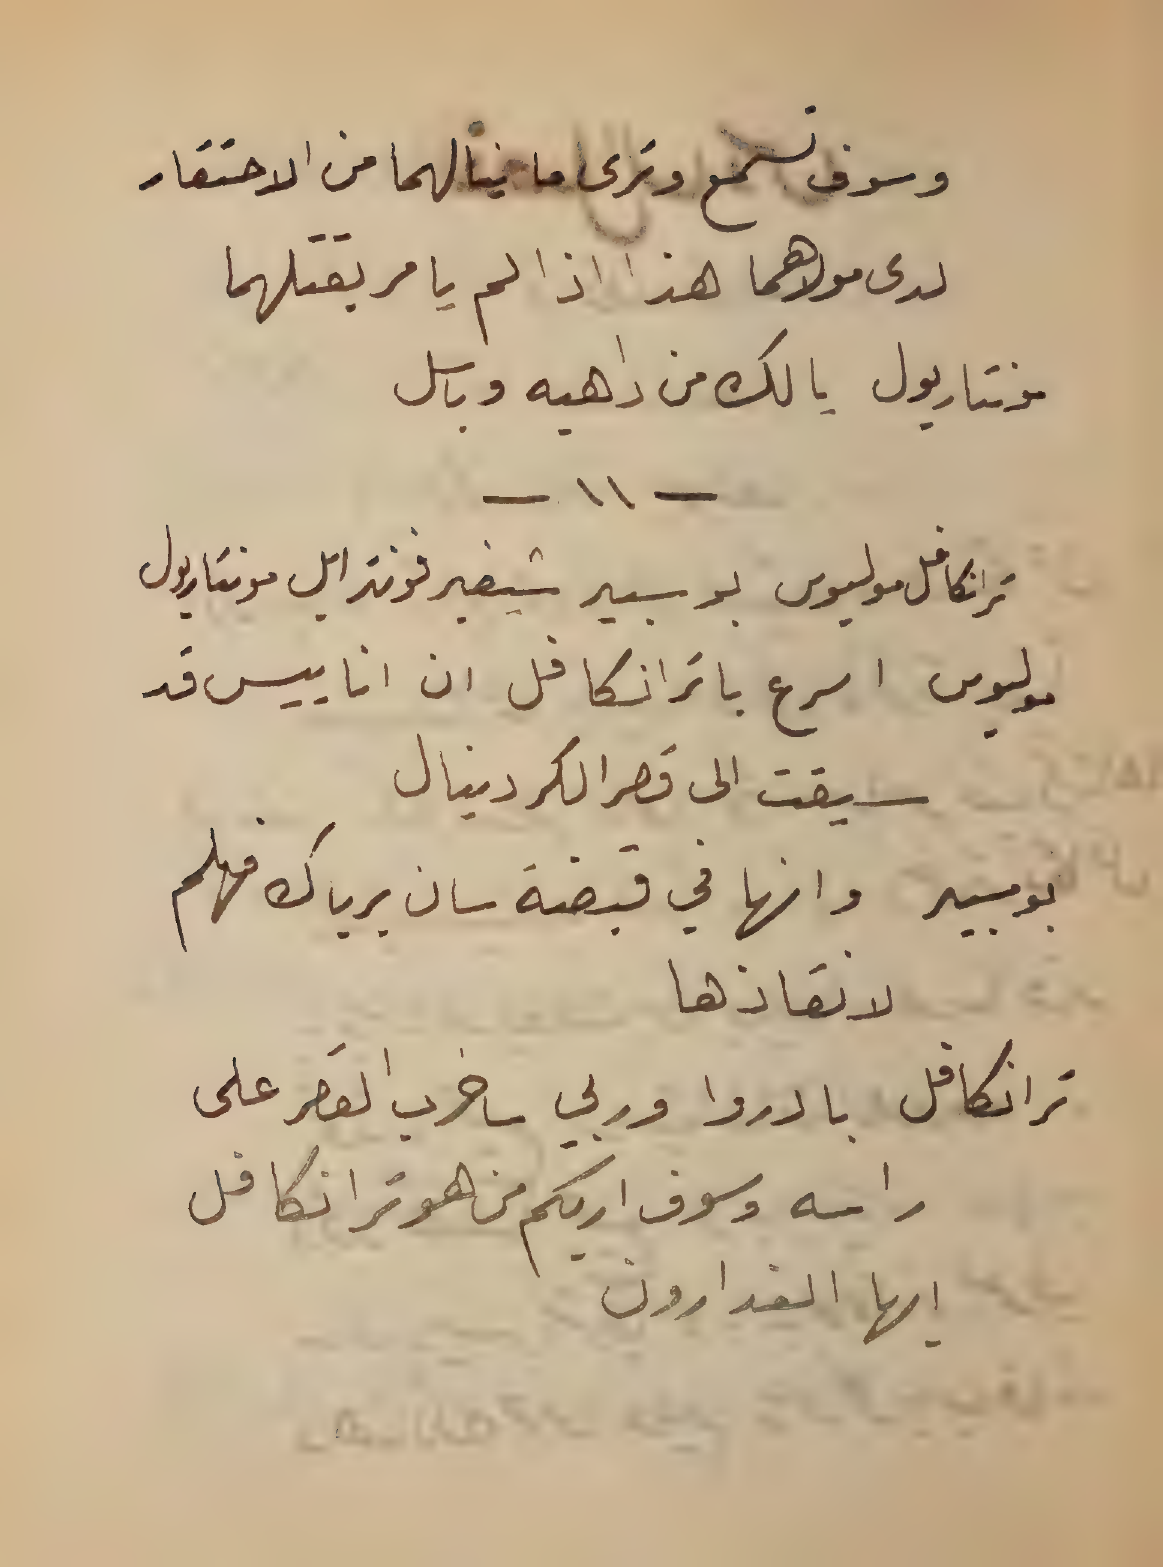 وسوف تسمع وترى ما ينالهما من الاحتقار
لدى مولاهما هذا اذا لم يامر بقتلهما
مونتاريول يا لك من داهيه وباسل
— ١١ —
ترانكافل موليوس بومبير شيفير فونترايل مونتاريول
موليوس اسرع يا ترانكافل ان اناييس قد
سيقت الى قصر الكردينال
بومبير وانها في قبضة سان برياك فهلم
لانقاذها
ترانكافل بادروا وربي ساخرب القصر على
راسه وسوف اريكم من هو ترانكافل
ايها الغدارون